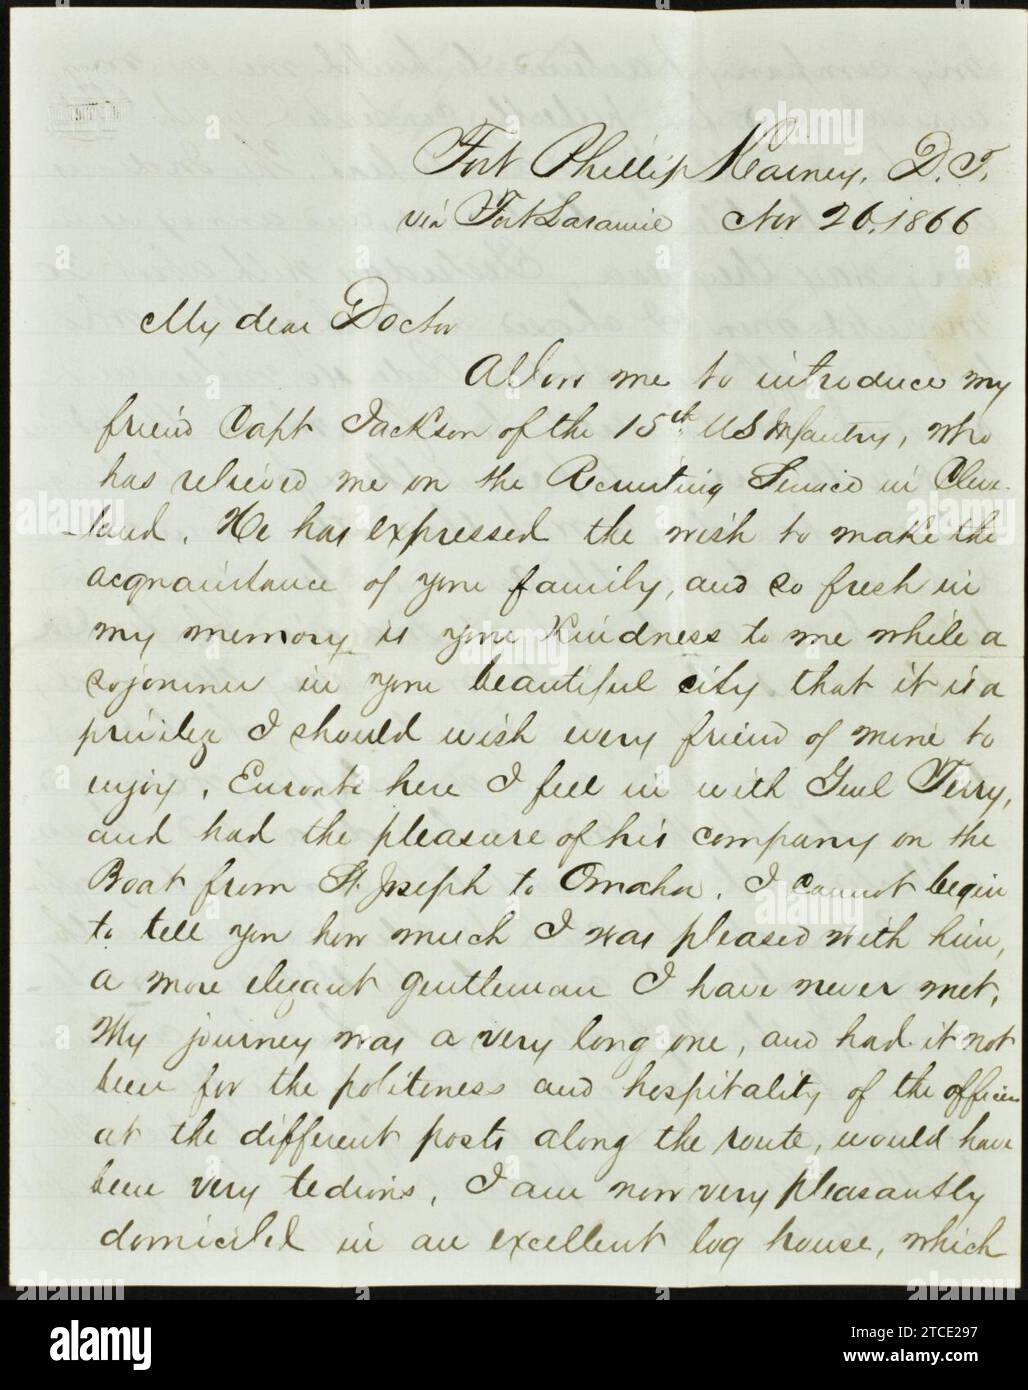 Fort Phillip Kearney, D.T.
via Fort Laramie Nov 26, 1866
My dear Doctor
Allow me to introduce my
friend Capt Jackson of the 15th US Infantry, who
has relieved me on the Recruiting Service in Cleve-
-land. He has expressed the wish to make the
acquaintance of your family, and so fresh in
my memory is your kindness to me while a
sojourner in your beautiful city that it is a
privilege I should wish every friend of mine to
enjoy. Enroute here I fell in with Genl Terry,
and had the pleasure of his company on the
Boat from St. Joseph to Omaha. I cannot begin
to tell you how much I was pleased with him,
a more elegant gentleman I have never met.
My journey was a very long one, and had it not
been for the politeness and hospitality of the officers
at the different posts along the route, would have
been very tedious. I am now very pleasantly
domiciled in an excellent log house, which
alamy
Image ID: 2TCE297
www.alamy.com